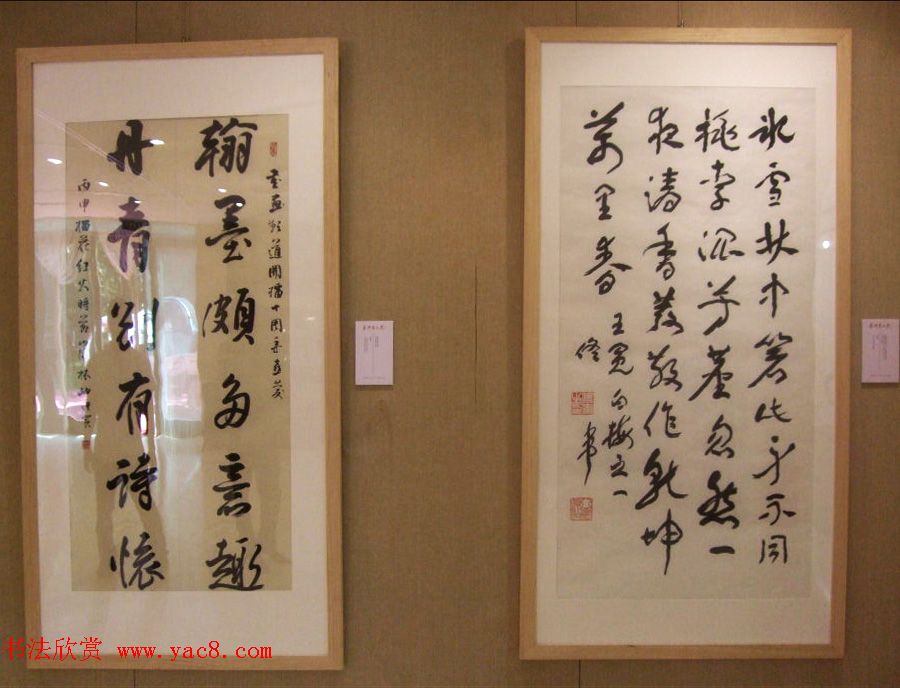 書画頻道開播十周年
翰墨頗多意趣
丹青別有詩懷
丙申榴花紅火時節
冰雪林中著此身不同
桃李混芳塵忽然一
夜清香發散作乾坤
萬里春
王冕白梅之一
书法欣赏 www.yac8.com